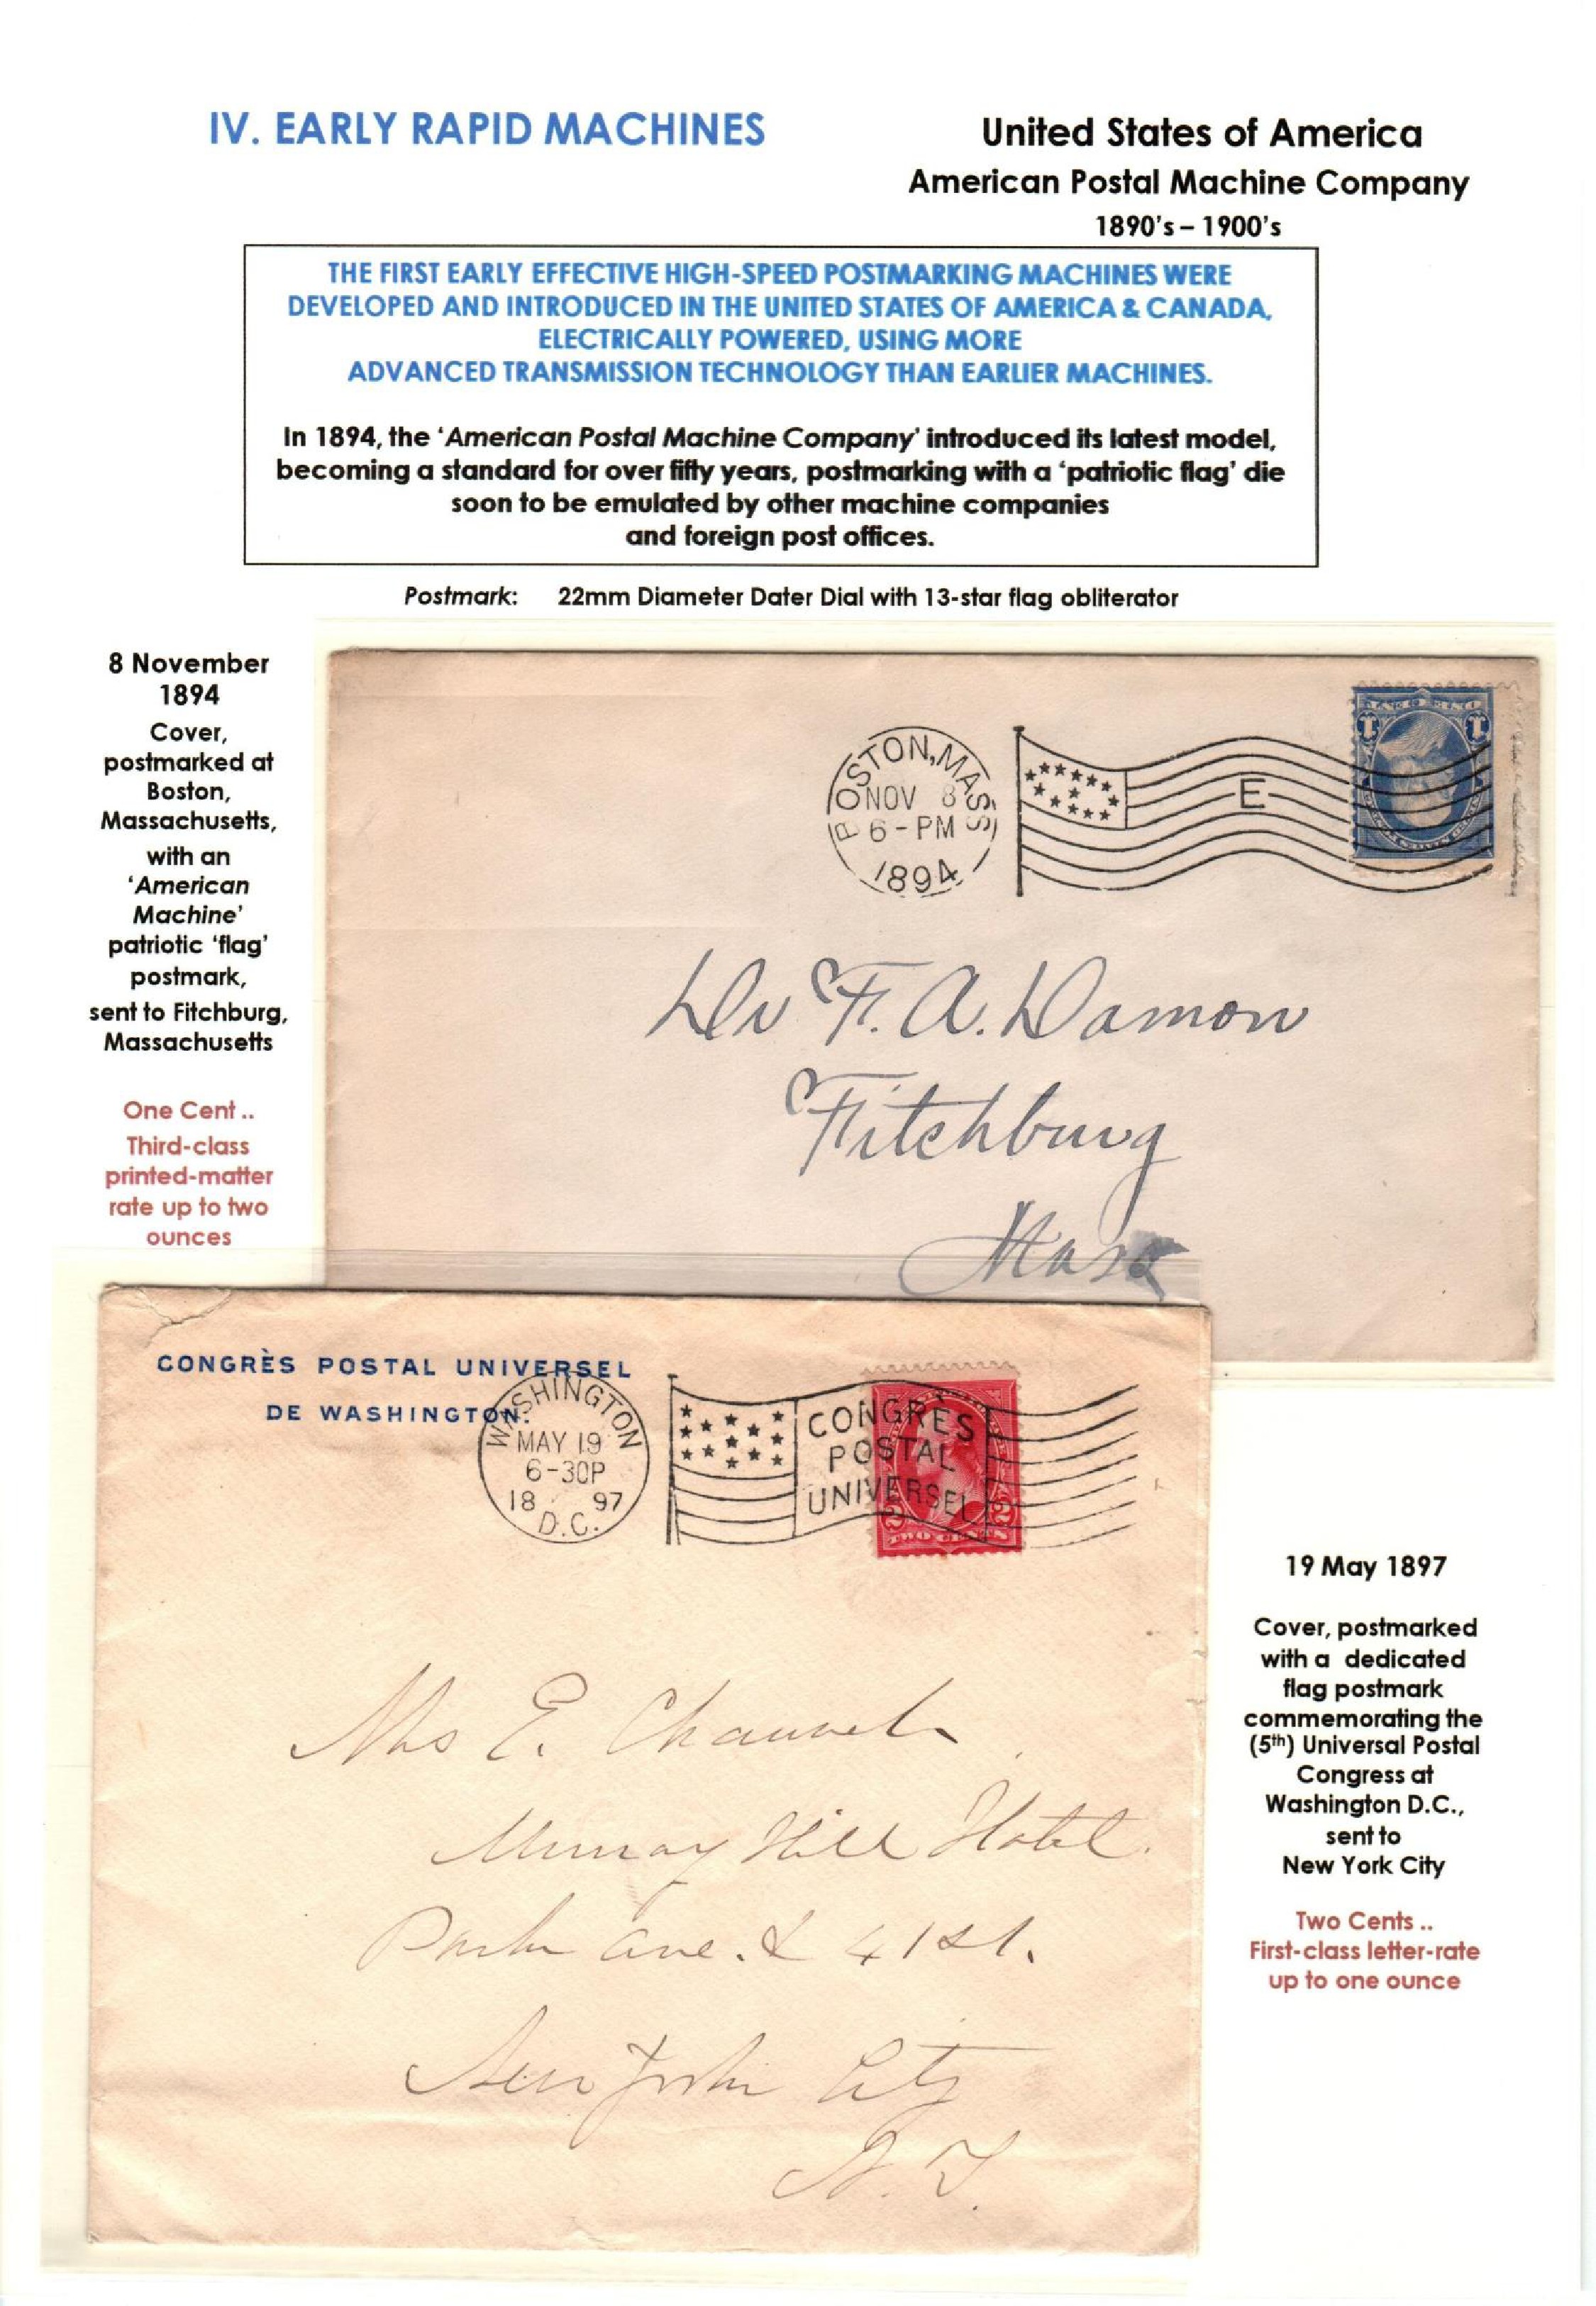 IV. EARLY RAPID MACHINES
United States of America
American Postal Machine Company
1890's – 1900's
THE FIRST EARLY EFFECTIVE HIGH-SPEED POSTMARKING MACHINES WERE
DEVELOPED AND INTRODUCED IN THE UNITED STATES OF AMERICA & CANADA,
ELECTRICALLY POWERED, USING MORE
ADVANCED TRANSMISSION TECHNOLOGY THAN EARLIER MACHINES.
In 1894, the 'American Postal Machine Company' introduced its latest model,
becoming a standard for over fifty years, postmarking with a 'patriotic flag' die
soon to be emulated by other machine companies
and foreign post offices.
Postmark: 22mm Diameter Dater Dial with 13-star flag obliterator
8 November
1894
Cover,
postmarked at
Boston,
Massachusetts,
with an
'American
Machine'
patriotic 'flag'
postmark,
sent to Fitchburg,
Massachusetts
One Cent ..
Third-class
printed-matter
rate up to two
ounces
BOSTON, MASS
NOV 8
6-PM
1894
E
1 1
Dr F. A. Damon
Fitchburg
Mass
CONGRÈS POSTAL UNIVERSEL
DE WASHINGTON.
WASHINGTON
MAY 19
6-30P
18 97
D.C.
CONGRÈS
POSTAL
UNIVERSEL
2 2
TWO CENTS
Mrs E.
Murray Hill Hotel.
Park Ave. & 41st.
New York City
N.Y.
19 May 1897
Cover, postmarked
with a dedicated
flag postmark
commemorating the
(5th) Universal Postal
Congress at
Washington D.C.,
sent to
New York City
Two Cents ..
First-class letter-rate
up to one ounce